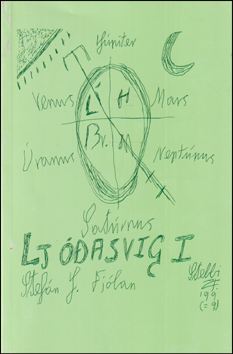 Júpiter
Venus Mars
L H
Br. M
Úranus Neptúnus
Satúrnus
LJÓÐASVIG I
Stefán J. Fjólan
Stebbi
'99
(=9)